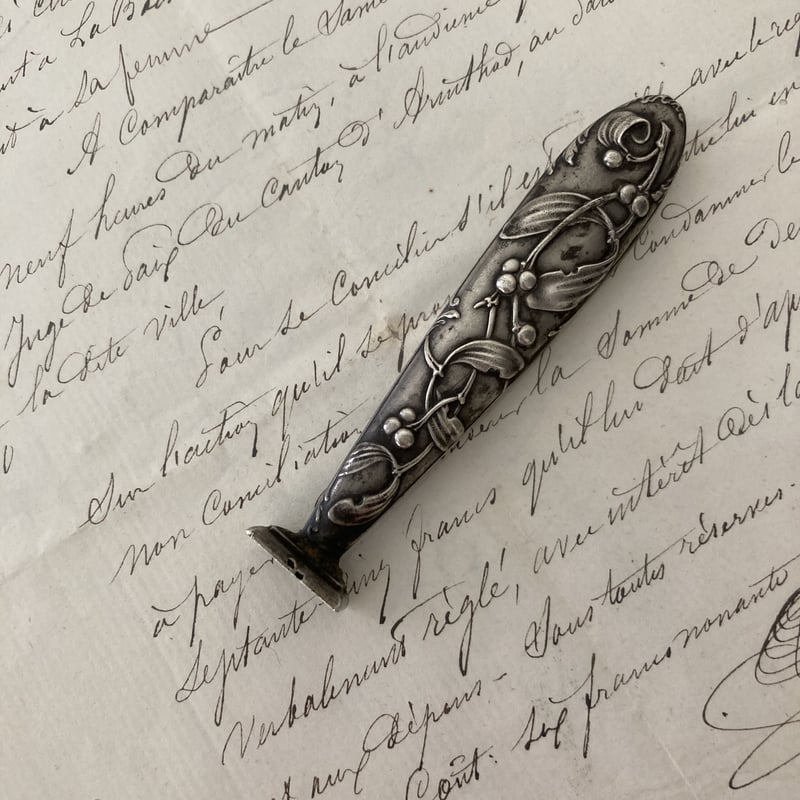 à La
et à sa femme
A Comparaître le Same
neuf heures du matin, à l'audience
Juge de Paix du Canton d'Arinthod, au dans
la dite ville,
Pour se Concilier s'il est avec le re
Sur l'action qu'il se pro entre lui en
non Conciliation Condamner le
à payer la Somme de
Septante-cinq francs qu'il lui doit d'ap
Verbalement réglé, avec intérêt dès la
et aux dépens - Sous toutes réserves.
Coût: six francs nonante